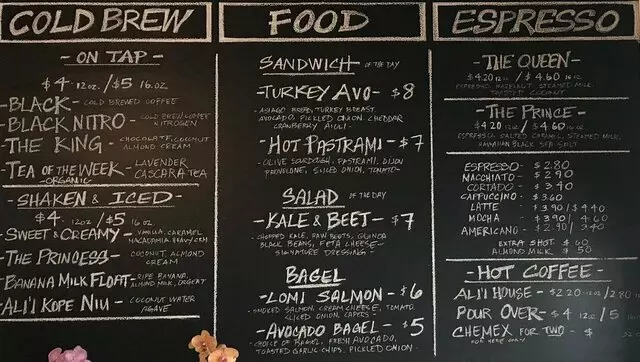 COLD BREW
- ON TAP -
$4 12 OZ. / $5 16 OZ.
- BLACK - COLD BREWED COFFEE
- BLACK NITRO - COLD BREW COMET
NITROGEN
- THE KING - CHOCOLATE, COCONUT
ALMOND CREAM
- TEA OF THE WEEK - LAVENDER
CASCARA TEA
- ORGANIC -
- SHAKEN & ICED -
$4 12 OZ / $5 16 OZ
- SWEET & CREAMY - VANILLA, CARAMEL
MACADAMIA, HEAVY CRM
- THE PRINCESS - COCONUT, ALMOND
CREAM
- BANANA MILK FLOAT - RIPE BANANA,
ALMOND MILK, ORGEAT
- ALI'I KOPE NIU - COCONUT WATER
AGAVE
FOOD
SANDWICH OF THE DAY
- TURKEY AVO - $8
- ASIAGO BREAD, TURKEY BREAST,
AVOCADO, PICKLED ONION, CHEDDAR
CRANBERRY AIOLI -
- HOT PASTRAMI - $7
- OLIVE SOURDOUGH, PASTRAMI, DIJON
PROVOLONE, SLICED ONION, TOMATO -
SALAD OF THE DAY
- KALE & BEET - $7
- CHOPPED KALE, RAW BEETS, QUINOA
BLACK BEANS, FETA CHEESE -
SIGNATURE DRESSING -
BAGEL
- LOMI SALMON - $6
SMOKED SALMON, CREAM CHEESE, TOMATO,
SLICED ONION, CAPERS -
- AVOCADO BAGEL - $5
- CHOICE OF BAGEL, FRESH AVOCADO,
TOASTED GARLIC CHIPS, PICKLED ONION -
ESPRESSO
- THE QUEEN -
$4.20 12 OZ / $4.60 16 OZ
ESPRESSO, HAZELNUT, STEAMED MILK,
TOASTED COCONUT
- THE PRINCE -
$4.20 12 OZ / $4.60 16 OZ
ESPRESSO, SALTED CARAMEL, STEAMED MILK,
HAWAIIAN BLACK SEA SALT
ESPRESSO - $2.80
MACCHIATO - $2.90
CORTADO - $3.40
CAPPUCCINO - $3.60
LATTE - $3.90 / $4.40
MOCHA - $3.90 / 4.60
AMERICANO - $2.90 / 3.40
EXTRA SHOT $.60
ALMOND MILK $.50
- HOT COFFEE -
ALI'I HOUSE - $2.20 12 OZ / 2.80
POUR OVER - $4 12 OZ / 5
CHEMEX FOR TWO - $
FOR HERE ONLY